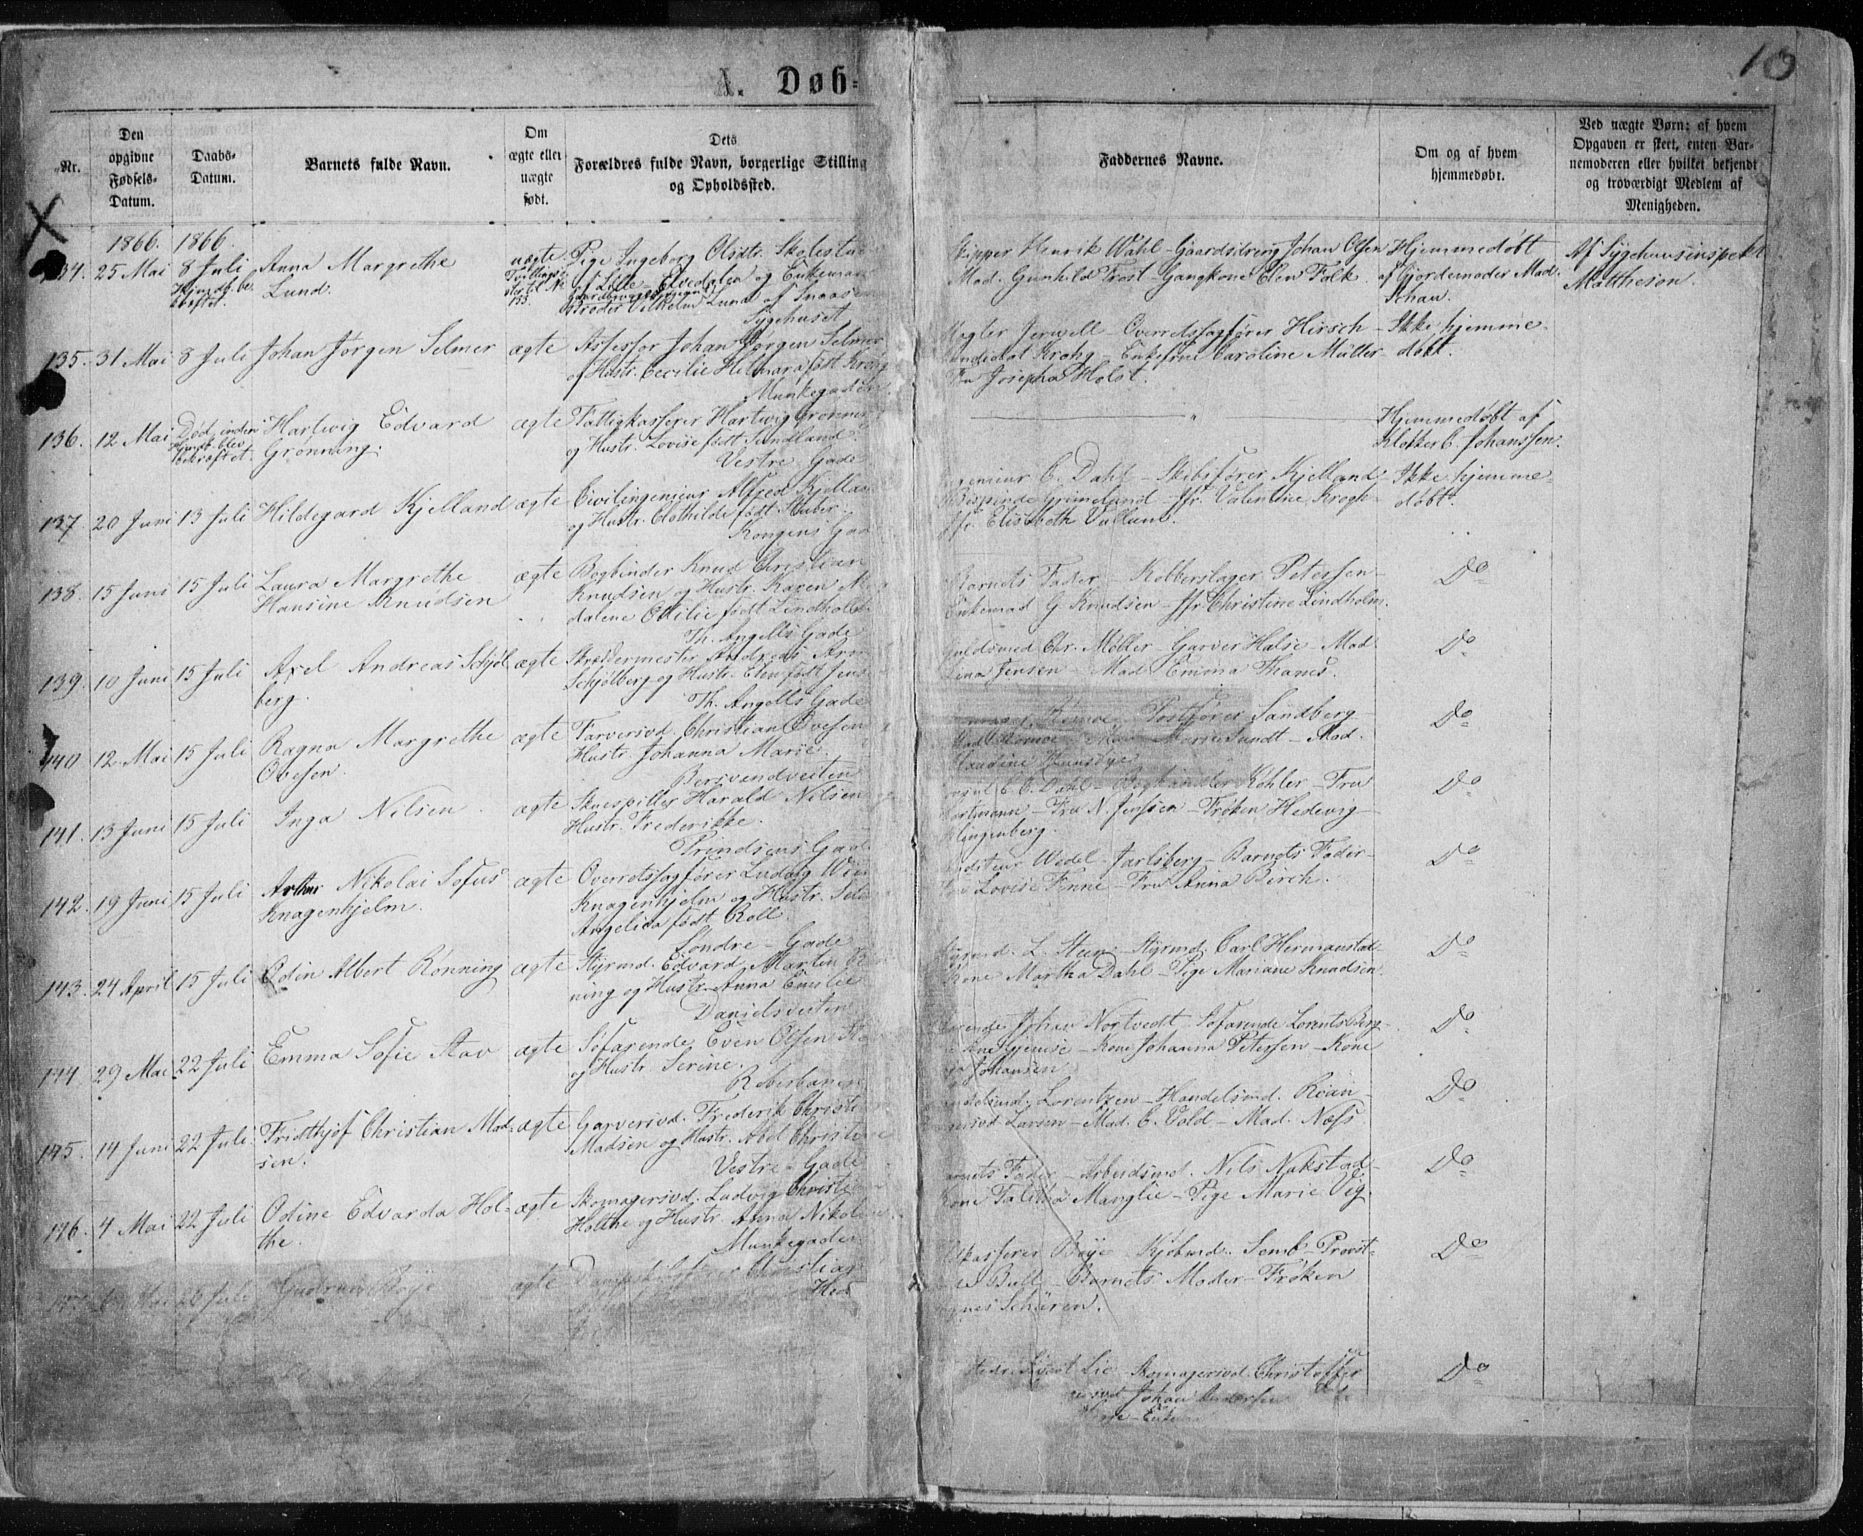 A. Døb=
10
Nr.
Den opgivne Fødsels-Datum.
Daabs-Datum.
Barnets fulde Navn.
Om ægte eller uægte født.
Dets Forældres fulde Navn, borgerlige Stilling og Opholdssted.
Faddernes Navne.
Om og af hvem hjemmedøbt.
Ved uægte Børn; af hvem Opgaven er skeet, enten Barnemoderen eller hvilket bekjendt og troværdigt Medlem af Menigheden.
1866. 1866.
134. 25 Mai 8 Juli Anna Margrethe uægte Pige Ingeborg Olsdtr.
Lund. af Lille-Elvedalen og Enkemand
Brøder Vilhelm Lund af Snaasen
Sygehuset
Skipper Henrik Wahl - Gaardsdreng Johan Olsen
Mad. Gunhild Prøst Gangkone Elen Falk.
Hjemmedøbt
af Gjordemoder Mad.
Schau.
Af Sygehusinspekt.
Mattheson.
135. 31 Mai 8 Juli Johan Jørgen Selmer ægte Assessor Johan Jørgen Selmer
og Hustr. Cecilie Hilmara født Krohg
Munkegaden
Mægler Jervell - Overretssagfører Hirsch -
Kandidat Krohg - Enkefrue Caroline Müller
Josepha Holst.
Ikke hjemme
døbt.
136. 12 Mai Død inden Hartvig Edvard ægte Fattigkasserer Hartvig Grønning
Hjmdb. blev bekræftet. Grønning.
og Hustr. Lovise født Sundland
Vestre Gade
Hjemmedøbt af
Klokker C. Johanssen.
137. 20 Juni 13 Juli Hildegard Kjelland ægte Civilingeniør Alfred Kjelland
og Hustr. Clothilde født Huber
Kongens Gade
Ingeniør C. Dahl - Skibsfører Kjelland
Bispinde Grimelund - Jfr. Valentine Krogh
Jfr. Elisabeth Vullum.
Ikke hjemme
døbt.
138. 15 Juni 15 Juli Laura Margrethe ægte Bogbinder Knud Christian
Hansine Knudsen Knudsen og Hustr. Karen Mag
dalene Otilie født Lindholm
Th. Angells Gade
Barnets Fader - Kobberslager Petersen -
Enkemad G. Knudsen - Jfr. Christine Lindholm.
Do
139. 10 Juni 15 Juli Axel Andreas Schjøl ægte Skræddermester Andreas Aron
berg. Schjølberg og Hustr. Elen født Jens
Th. Angells Gade
Guldsmed Chr. Møller - Garver Halse - Mad.
Lina Jensen - Mad. Emma Thams.
Do
140 12 Mai 15 Juli Ragna Margrethe ægte Farversvd. Christian Ovesen
Ovesen. Hustr. Johanna Marie.
Bersvendveiten
Rømoe - Postfører Sandberg
Marie Sundt - Mad.
Do
141. 13 Juni 15 Juli Inga Nilsen ægte Skuespiller Harald Nilsen
Hustr. Frederikke.
Prindsens Gade
C. C. Dahl - Boghandler Køhler - Fru
Hartmann - Fru N. Jenssen - Frøken Hedevig
Klingenberg.
Do
142. 19 Juni 15 Juli Arthur Nikolai Sofus ægte Overretssagfører Ludvig
Knagenhjelm. Knagenhjelm og Hustr.
Angelica født Roll.
Søndre-Gade
Auditeur Wedel-Jarlsberg - Barnets Fader -
Lovise Finne - Fru Anna Birch.
Do
143. 24 April 15 Juli Odin Albert Rønning ægte Styrmd. Edvard Martin Røn
ning og Hustr. Anna Emilie
Danielsveiten
Styrmd. L. Steen - Styrmd. Carl Hermanstad
Kone Martha Dahl - Pige Mariane Knudsen
Do
144. 29 Mai 22 Juli Emma Sofie Stav ægte Søfarende Even Olsen Stav
og Hustr. Serine.
Reberbanen
Johan Nortvedt - Søfarende Lorents Berg -
Kone Johanna Petersen - Kone
Johansen
Do
145. 14 Juni 22 Juli Fridthjof Christian Mad= ægte Garversvd. Frederik Christi
sen. Madsen og Hustr. Abel Christine
Vestre-Gade
Lorentzen - Handelsmd. Roan -
Larsen - Mad. C. Vold - Mad. Næss.
Do
146. 4 Mai 22 Juli Odine Edvarda Hol= ægte Skomagersvd. Ludvig Christi
the. Holthe og Hustr. Anna Nikoline
Munkegaden
Barnets Fader - Arbeidsmd. Nils Nakstad -
Kone Talitha Manglie - Pige Marie Vig.
Do
147. Mai Juli Gudrun Bøye ægte Christian
Kasserer Bøye - Kjøbmd. Semb - Provst-
inde Bull - Barnets Moder - Frøken
Agnes Schüren.
Do
Lie - Skomagersvd. Christoffer
Johan Andersen
Do